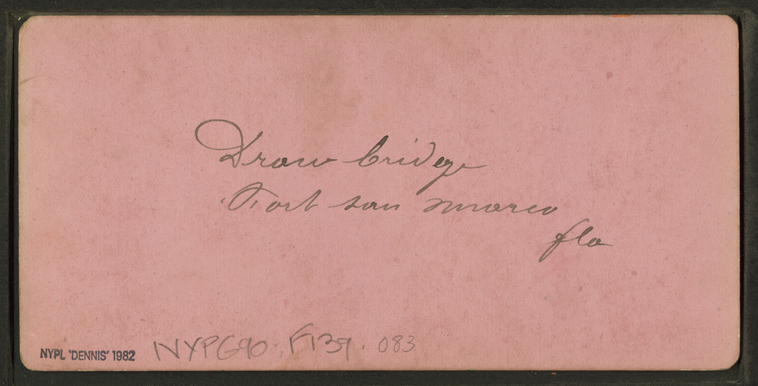 Draw bridge
Fort san marco
fla
NYPL 'DENNIS' 1982 NYPG90. F139. 083